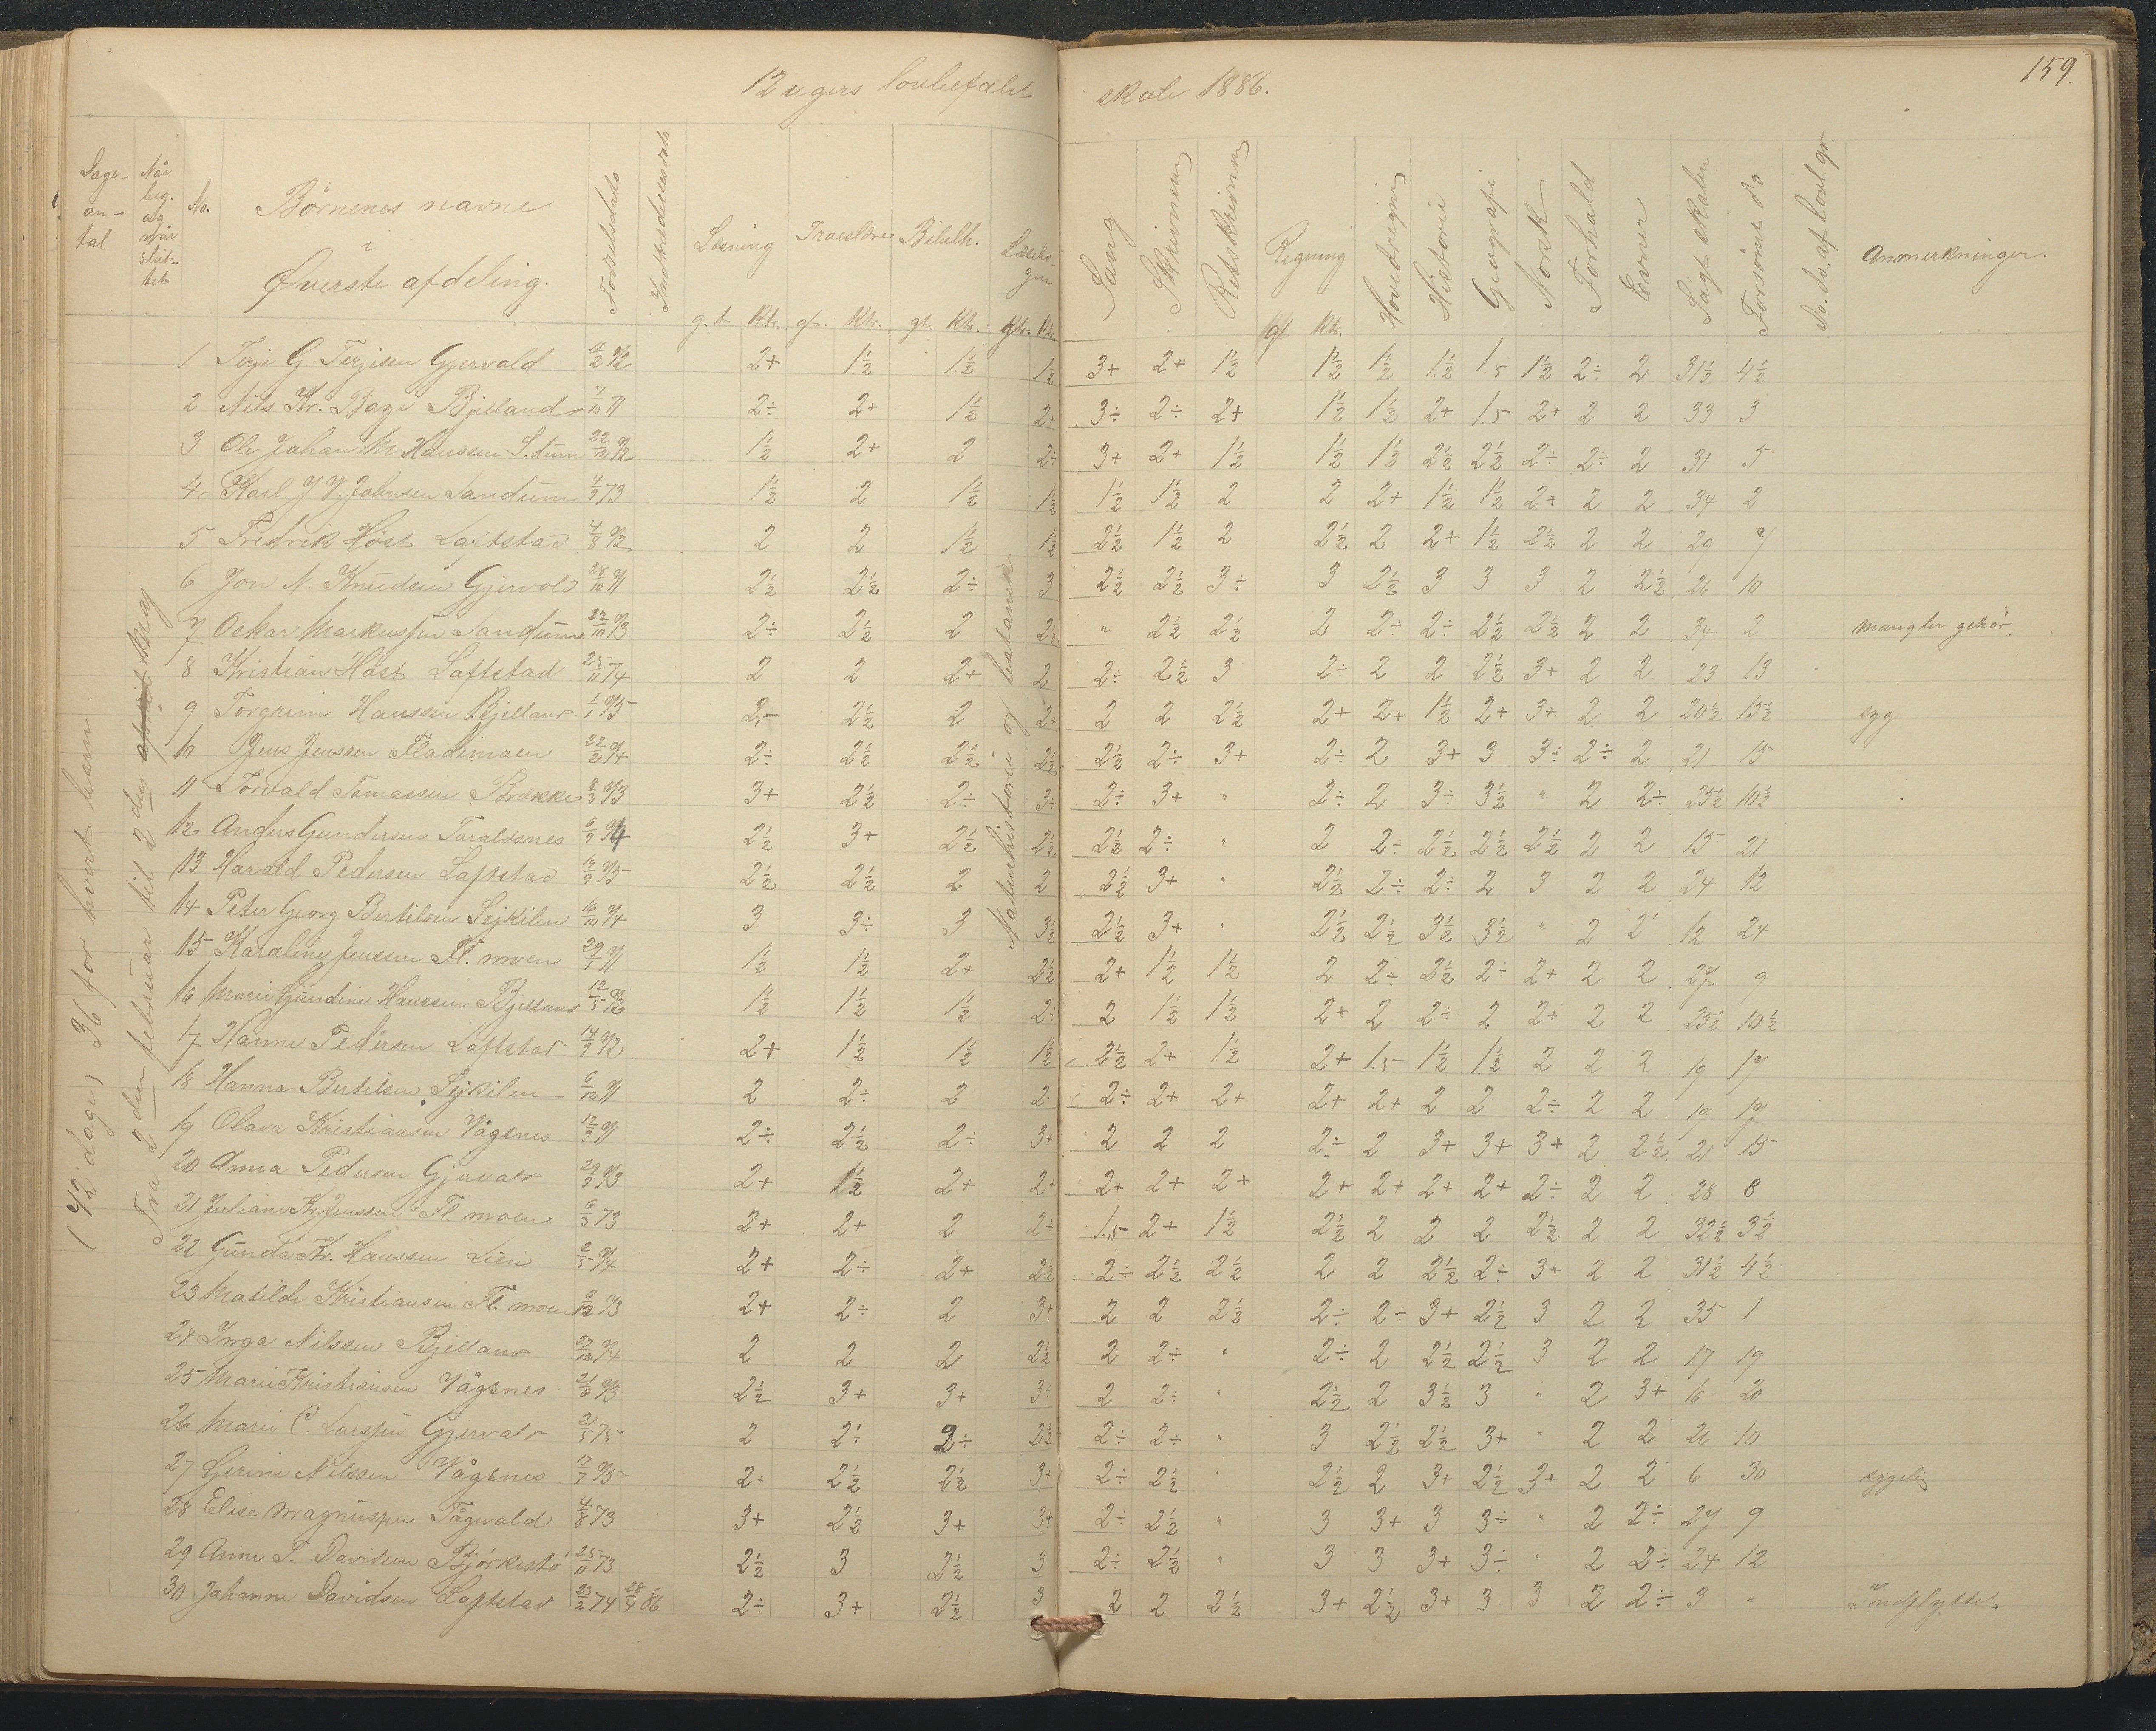 12 ugers lovbefalet skole 1886.
159.
Dage-antal
Når beg. og når slut-tet
No.
Børnenes navne i Øverste afdeling.
Fødselsdato
Indtrædelsesdato
Læsning g.t. Ktr.
Troeslære gt. Ktr.
Bibelh. gt. Ktr.
Læsebogen gt. Ktr.
Sang
Skrivning
Retskrivning
Regning gt. Ktr.
Hovedregning
Historie
Geografi
Norsk
Forhold
Evner
Søgt skolen
Forsömt do
Do. do. af lovl. gr.
Anmerkninger.
(72 dage) 36 for hvert barn.
Fra 2den februar til 2den april maj
Naturhistorie og botanik
1 Terje G. Terjesen Gjervold 11/2 72 2+ 1½ 1½ 1½ 3+ 2+ 1½ 1½ 1½ 1½ 1.5 1½ 2÷ 2 31½ 4½
2 Nils Kr. Bazi Bjelland 7/10 71 2÷ 2+ 1½ 2+ 3÷ 2÷ 2+ 1½ 1½ 2+ 1.5 2+ 2 2 33 3
3 Ole Johan M Hanssen S.dum 22/12 72 1½ 2+ 2 2÷ 3+ 2+ 1½ 1½ 1½ 2½ 2½ 2÷ 2÷ 2 31 5
4 Karl J. V. Johnsen Sandum 4/9 73 1½ 2 1½ 1½ 1½ 1½ 2 2 2+ 1½ 1½ 2+ 2 2 34 2
5 Fredrik Høst Loftstad 4/8 72 2 2 1½ 1½ 2½ 1½ 2 2½ 2 2+ 1½ 2½ 2 2 29 7
6 Jon N. Knudsen Gjervold 28/10 71 2½ 2½ 2÷ 3 2½ 2½ 3÷ 3 2½ 3 3 3 2 2½ 26 10
7 Oskar Markussen Sandum 22/10 73 2÷ 2½ 2 2½ " 2½ 2½ 2 2÷ 2÷ 2½ 2½ 2 2 34 2 mangler gehör.
8 Kristian Høst Loftstad 25/11 74 2 2 2+ 2 2÷ 2½ 3 2÷ 2 2 2½ 3+ 2 2 23 13
9 Torgrim Hanssen Bjelland 1/1 75 2,- 2½ 2 2+ 2 2 2½ 2+ 2+ 1½ 2+ 3+ 2 2 20½ 15½ syg
10 Jens Jenssen Fladimoen 22/2 74 2÷ 2½ 2½ 2½ 2½ 2÷ 3+ 2÷ 2 3+ 3 3÷ 2÷ 2 21 15
11 Torvald Tomassen Brække 8/3 73 3+ 2½ 2÷ 3÷ 2÷ 3+ " 2÷ 2 3÷ 3½ " 2 2÷ 25½ 10½
12 Anders Gundersen Taraldsnes 6/9 74 2½ 3+ 2½ 2½ 2½ 2÷ " 2 2÷ 2½ 2½ 2½ 2 2 15 21
13 Harald Pedersen Loftstad 19/9 75 2½ 2½ 2 2 2½ 3+ " 2½ 2÷ 2÷ 2 3 2 2 24 12
14 Peter Georg Bertilsen Sejkilen 16/10 74 3 3÷ 3 3½ 2½ 3+ " 2½ 2½ 3½ 3½ " 2 2 12 24
15 Karoline Jenssen Fl. moen 29/1 71 1½ 1½ 2+ 2½ 2+ 1½ 1½ 2 2÷ 2½ 2÷ 2+ 2 2 27 9
16 Marie Gundine Hanssen Bjelland 12/5 72 1½ 1½ 1½ 2÷ 2 1½ 1½ 2+ 2 2÷ 2 2+ 2 2 25½ 10½
17 Hanne Pedersen Loftstad 14/9 72 2+ 1½ 1½ 1½ 2½ 2+ 1½ 2+ 1.5 1½ 1½ 2 2 2 19 17
18 Hanna Bertilsen Sejkilen 6/12 71 2 2÷ 2 2 2÷ 2+ 2+ 2+ 2+ 2 2 2÷ 2 2 19 17
19 Olava Kristiansen Vågsnes 12/9 71 2÷ 2½ 2÷ 3+ 2 2 2 2÷ 2 3+ 3+ 3+ 2 2½ 21 15
20 Anna Pedersen Gjervold 29/9 73 2+ 1½ 2+ 2+ 2+ 2+ 2+ 2+ 2+ 2+ 2+ 2÷ 2 2 28 8
21 Juliane Kr. Jenssen Fl moen 6/3 73 2+ 2+ 2 2÷ 1.5 2+ 1½ 2½ 2 2 2 2½ 2 2 32½ 3½
22 Gunda Kr. Hanssen Lien 2/5 74 2+ 2÷ 2+ 2½ 2÷ 2½ 2½ 2 2 2½ 2÷ 3+ 2 2 31½ 4½
23 Matilde Kristiansen Fl. moen 6/12 73 2+ 2÷ 2 3+ 2 2 2½ 2÷ 2÷ 3+ 2½ 3 2 2 35 1
24 Inga Nilssen Bjelland 27/12 74 2 2 2 2½ 2 2÷ " 2÷ 2 2½ 2½ 3 2 2 17 19
25 Marie Kristiansen Vågsnes 21/6 73 2½ 3+ 3+ 3÷ 2 2÷ " 2½ 2 3½ 3 " 2 3+ 16 20
26 Marie C. Larsen Gjervold 21/5 75 2 2÷ 2÷ 2½ 2÷ 2÷ " 3 2½ 2½ 3+ " 2 2 26 10
27 Gerine Nilssen Vågsnes 17/7 75 2÷ 2½ 2½ 3+ 2÷ 2½ " 2½ 2 3+ 2½ 3+ 2 2 6 30 sygelig
28 Elise Magnussen Tågvold 4/8 73 3+ 2½ 3+ 3+ 2÷ 2½ " 3 3+ 3 3÷ " 2 2÷ 27 9
29 Anne T. Davidsen Bjørkestø 25/11 73 2½ 3 2½ 3 2÷ 2½ " 3 3 3+ 3÷ " 2 2÷ 24 12
30 Johanne Davidsen Loftstad 23/2 74 28/4 86 2÷ 3+ 2½ 3 2 2 2½ 3+ 2½ 3+ 3 3 2 2÷ 3 " Indflyttet